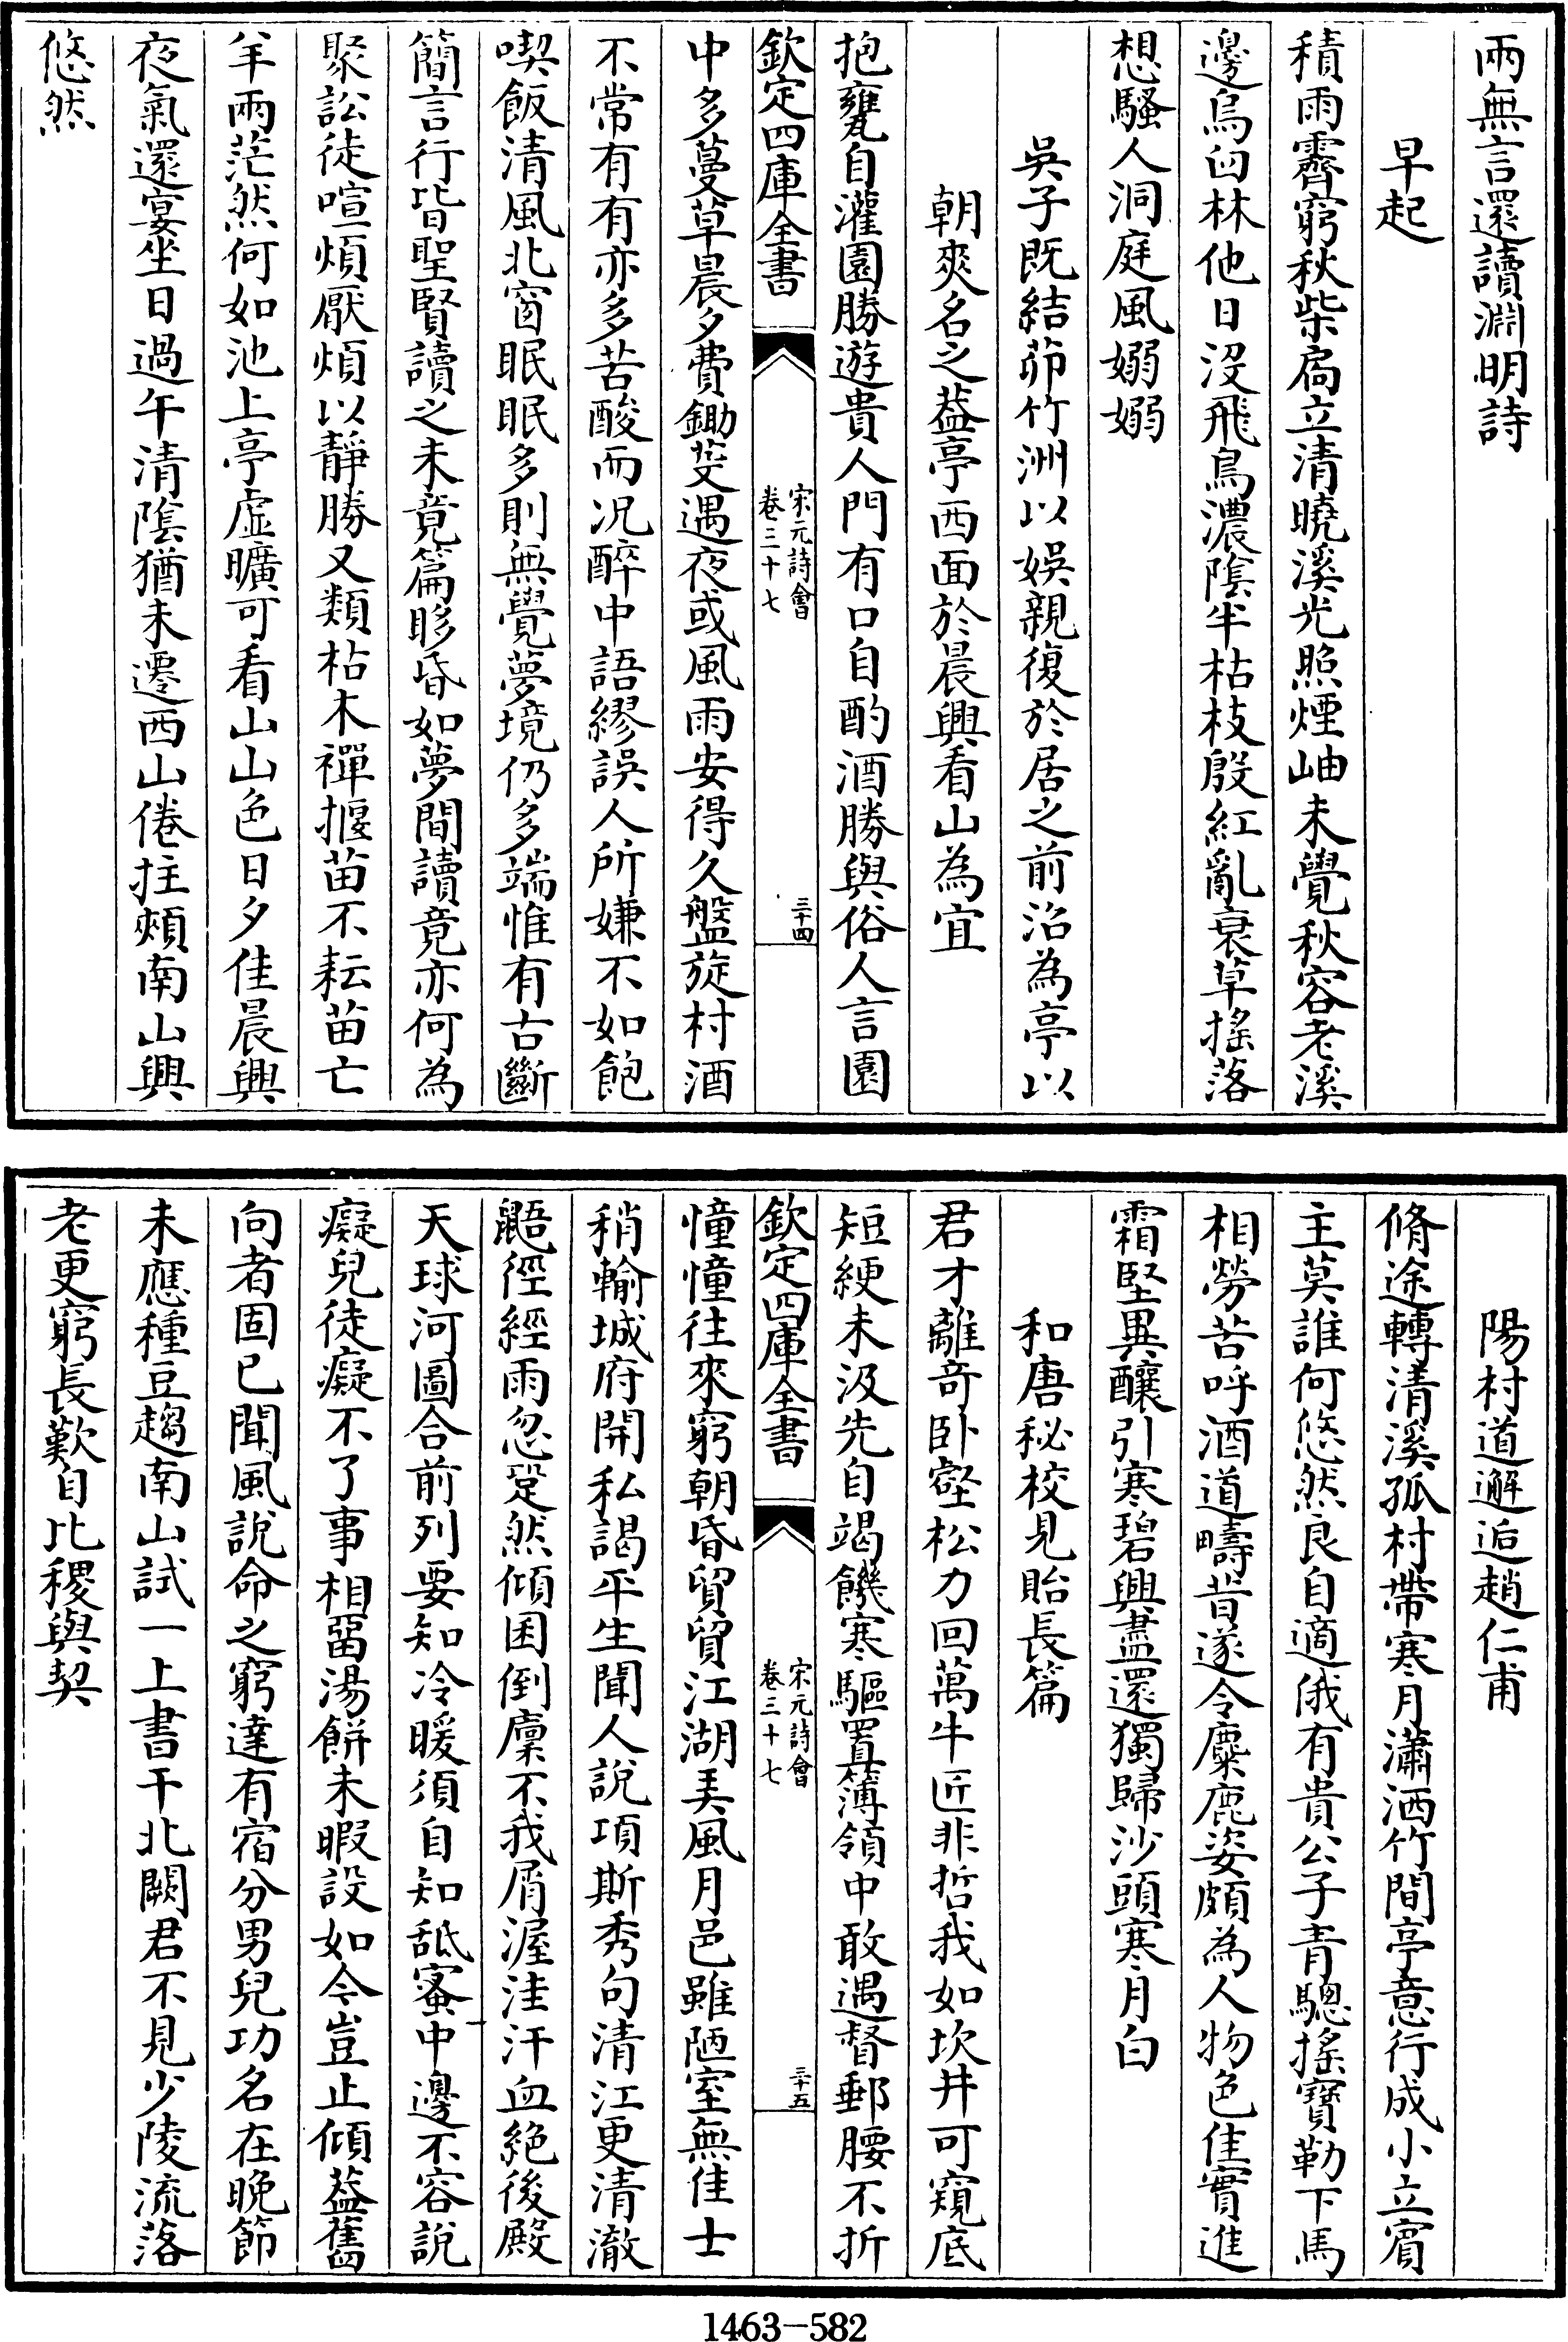 兩無言還讀淵明詩
早起
積雨霽窮秋柴扃立清曉溪光照煙岫未覺秋容老溪
邊烏臼林他日沒飛鳥濃隂半枯枝殷紅亂衰草搖落
想騷人洞庭風嫋嫋
吳子既結茆竹洲以娛親復於居之前沿為亭以
朝爽名之葢亭西面於晨興看山為宜
抱甕自灌園勝遊貴人門有口自酌酒勝與俗人言園
欽定四庫全書
宋元詩會
卷三十七
三十四
中多蔓草晨夕費鋤芟遇夜或風雨安得久盤旋村酒
不常有有亦多苦酸而况醉中語繆誤人所嫌不如飽
喫飯清風北窗眠眠多則無覺夢境仍多端惟有古斷
簡言行皆聖賢讀之未竟篇眵昏如夢間讀竟亦何為
聚訟徒喧煩厭煩以靜勝又類枯木禪揠苗不耘苗亡
羊兩茫然何如池上亭虛曠可看山山色日夕佳晨興
夜氣還宴坐日過午清隂猶未遷西山倦拄頰南山興
悠然
陽村道邂逅趙仁甫
脩途轉清溪孤村帶寒月瀟洒竹間亭意行成小立賓
主莫誰何悠然良自適俄有貴公子青驄搖寶勒下馬
相勞苦呼酒道疇昔遂令麋鹿姿頗為人物色佳實進
霜堅異釀引寒碧興盡還獨歸沙頭寒月白
和唐秘校見貽長篇
君才離奇卧壑松力回萬牛匠非哲我如坎井可窺底
短綆未汲先自竭饑寒驅置簿領中敢遇督郵腰不折
欽定四庫全書
宋元詩會
卷三十七
三十五
憧憧往來窮朝昏貿貿江湖美風月邑雖陋室無佳士
稍輸城府開私謁平生聞人說項斯秀句清江更清澈
鼯徑經雨忽跫然傾囷倒廩不我屑渥洼汗血絕後殿
天球河圖合前列要知冷暖須自知舐蜜中邊不容說
癡兒徒癡不了事相畱湯餅未暇設如今豈止傾葢舊
向者固已聞風說命之窮達有宿分男兒功名在晚節
未應種豆趨南山試一上書干北闕君不見少陵流落
老更窮長歎自比稷與契
1463-582